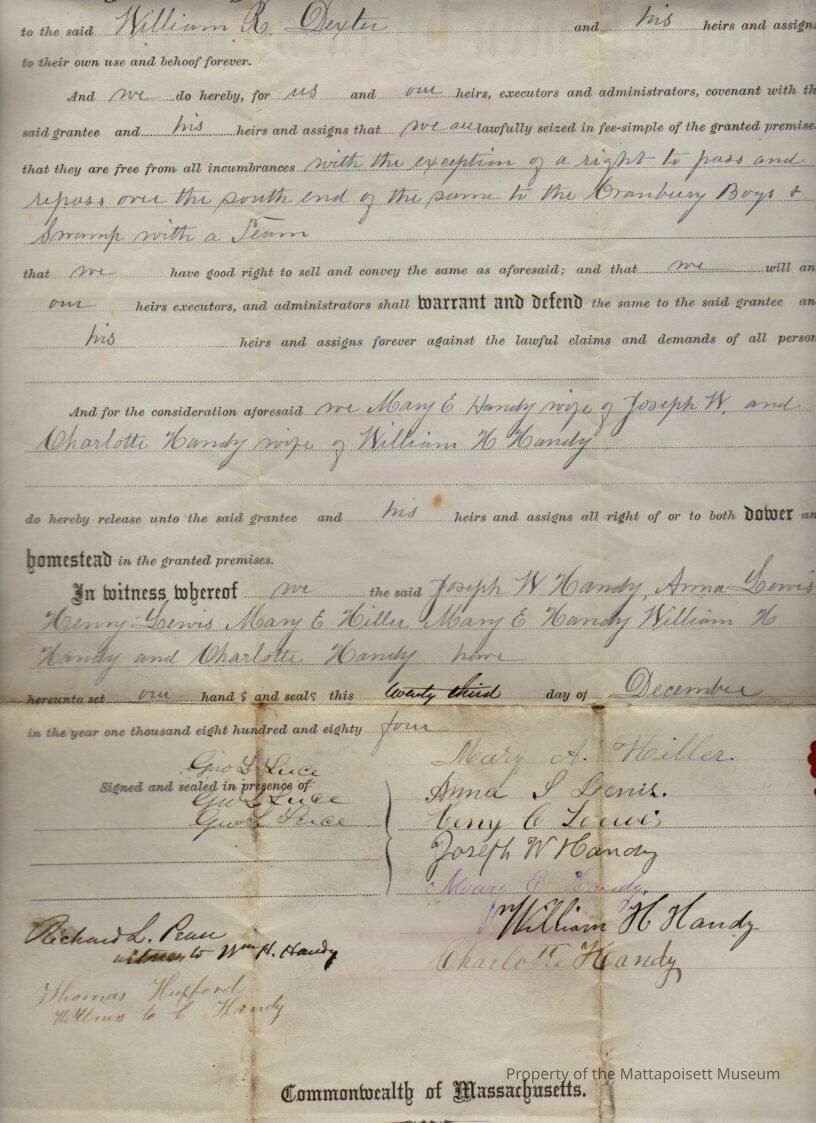 to the said William R. Dexter and his heirs and assigns
to their own use and behoof forever.
And we do hereby, for us and our heirs, executors and administrators, covenant with th
said grantee and his heirs and assigns that we are lawfully seized in fee-simple of the granted premises
that they are free from all incumbrances with the exception of a right to pass and
repass over the south end of the same to the Cranbury Bogs &
Swamp with a Team
that we have good right to sell and convey the same as aforesaid; and that we will an
our heirs executors, and administrators shall warrant and defend the same to the said grantee an
his heirs and assigns forever against the lawful claims and demands of all person
And for the consideration aforesaid we Mary E Handy wife of Joseph W. and
Charlotte Handy wife of William H Handy
do hereby release unto the said grantee and his heirs and assigns all right of or to both dower an
homestead in the granted premises.
In witness whereof we the said Joseph W Handy, Anna Lewis
Henry Lewis Mary E Hiller Mary E Handy William H
Handy and Charlotte Handy have
hereunto set our hands and seals this twenty third day of December
in the year one thousand eight hundred and eighty four
Mary A. Hiller.
Geo L Luce
Signed and sealed in presence of
Anna S Lewis.
Geo L Luce
Henry C Lewis
Geo L Luce
Joseph W Handy
Mary E Handy.
William H Handy
Richard L. Pease
witness to Wm H. Handy
Charlotte Handy
Thomas
Witness to C Handy
Property of the Mattapoisett Museum
Commonwealth of Massachusetts.